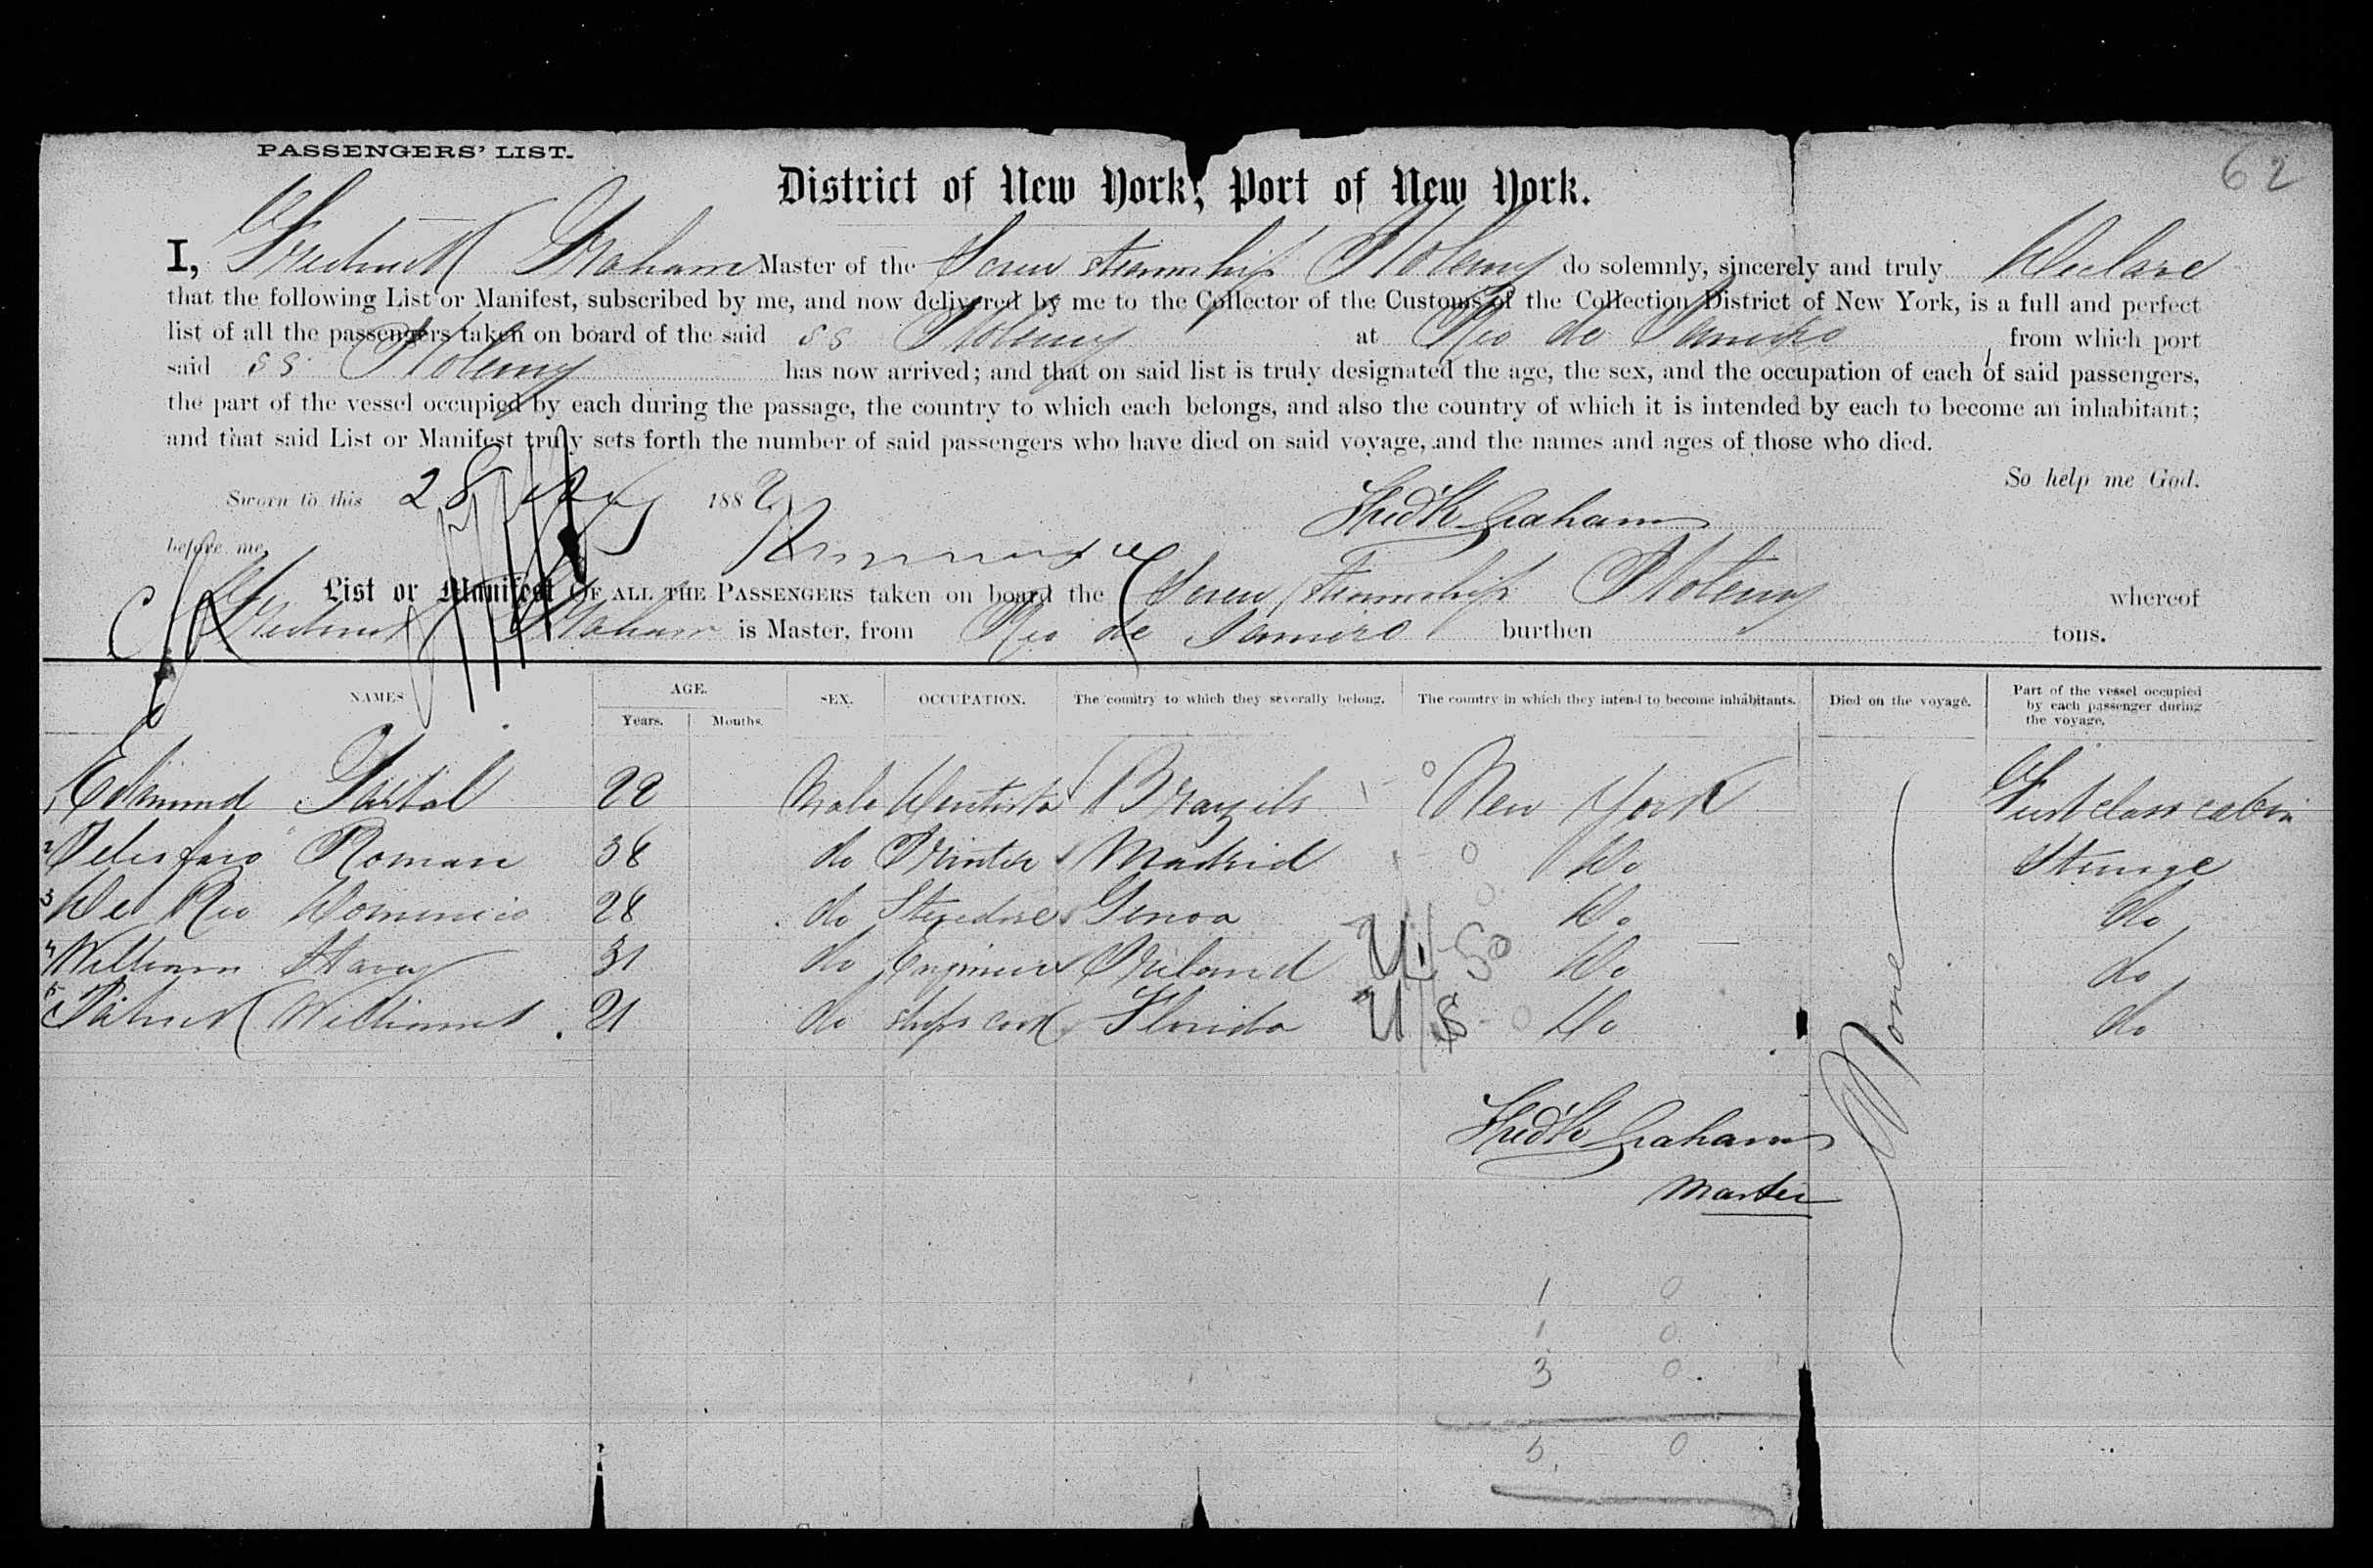 PASSENGERS' LIST.
62
District of New York, Port of New York.
I, Frederick Graham Master of the Screw Steamship Ptolemy do solemnly, sincerely and truly Declare
that the following List or Manifest, subscribed by me, and now delivered by me to the Collector of the Customs of the Collection District of New York, is a full and perfect
list of all the passengers taken on board of the said SS Ptolemy at Rio de Janeiro from which port
said SS Ptolemy has now arrived; and that on said list is truly designated the age, the sex, and the occupation of each of said passengers,
the part of the vessel occupied by each during the passage, the country to which each belongs, and also the country of which it is intended by each to become an inhabitant;
and that said List or Manifest truly sets forth the number of said passengers who have died on said voyage, and the names and ages of those who died.
So help me God.
Sworn to this 28 1882
Fredk Graham
before me
List or Manifest OF ALL THE PASSENGERS taken on board the Screw Steamship Ptolemy whereof
Frederick Graham is Master, from Rio de Janeiro burthen tons.
NAMES AGE. SEX. OCCUPATION. The country to which they severally belong. The country in which they intend to become inhabitants. Died on the voyage. Part of the vessel occupied by each passenger during the voyage.
Years. Months.
1 Edmund 22 Male Dentista Brazils 1 0 New York First class cabin
2 Roman 38 do Printer Madrid 1 0 Do Steerage
3 Del Rio Domenico 28 do Stevedore Genoa 0 Do do
4 William 31 do Engineer Ireland Do do
5 Patrick Williams 21 do ships cook Florida 0 Do do
None
Fredk Graham
Master
1 0
1 0
3 0
5 0